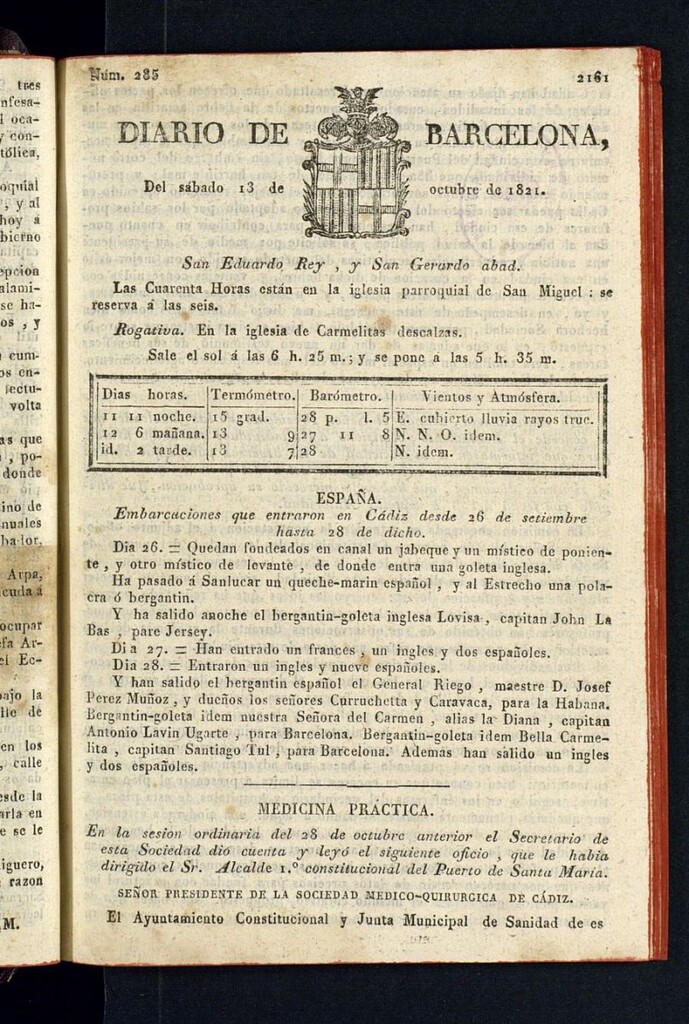 tres
nfesa-
l oca-
y con-
tólica,
oquial
, y al
hoy á
bierno
epcion
alami-
se ha-
os , y
cum-
os en-
lectu-
volta
as que
, po-
donde
ino de
nuales
bador,
Arpa,
cuda á
ocupar
efa Ar-
el Ec-
bajo la
lle de
en los
, calle
esde la
arla en
e se le
iguero,
razon
M.
Núm. 285 2161
DIARIO DE BARCELONA,
Del sábado 13 de octubre de 1821.
San Eduardo Rey , y San Gerardo abad.
Las Cuarenta Horas están en la iglesia parroquial de San Miguel : se
reserva á las seis.
Rogativa. En la iglesia de Carmelitas descalzas.
Sale el sol á las 6 h. 25 m. ; y se pone á las 5 h. 35 m.
Dias horas. Termómetro. Barómetro. Vientos y Atmósfera.
11 11 noche. 15 grad. 28 p. l. 5 E. cubierto lluvia rayos truc.
12 6 mañana. 13 9 27 11 8 N. N. O. idem.
id. 2 tarde. 13 7 28 N. idem.
ESPAÑA.
Embarcaciones que entraron en Cádiz desde 26 de setiembre
hasta 28 de dicho.
Dia 26. = Quedan fondeados en canal un jabeque y un místico de ponien-
te , y otro místico de levante , de donde entra una goleta inglesa.
Ha pasado á Sanlucar un queche-marin español , y al Estrecho una pola-
cra ó bergantin.
Y ha salido anoche el bergantin-goleta inglesa Lovisa , capitan John La
Bas , pare Jersey.
Dia 27. = Han entrado un frances , un ingles y dos españoles.
Dia 28. = Entraron un ingles y nueve españoles.
Y han salido el bergantin español el General Riego , maestre D. Josef
Perez Muñoz , y dueños los señores Curruchetta y Caravaca, para la Habana.
Bergantin-goleta idem nuestra Señora del Carmen , alias la Diana , capitan
Antonio Lavin Ugarte , para Barcelona. Bergantin-goleta idem Bella Carme-
lita , capitan Santiago Tul , para Barcelona. Ademas han salido un ingles
y dos españoles.
MEDICINA PRÁCTICA.
En la sesion ordinaria del 28 de octubre anterior el Secretario de
esta Sociedad dió cuenta y leyó el siguiente oficio , que le habia
dirigido el Sr. Alcalde 1.º constitucional del Puerto de Santa María.
SEÑOR PRESIDENTE DE LA SOCIEDAD MEDICO-QUIRURGICA DE CÁDIZ.
El Ayuntamiento Constitucional y Junta Municipal de Sanidad de es